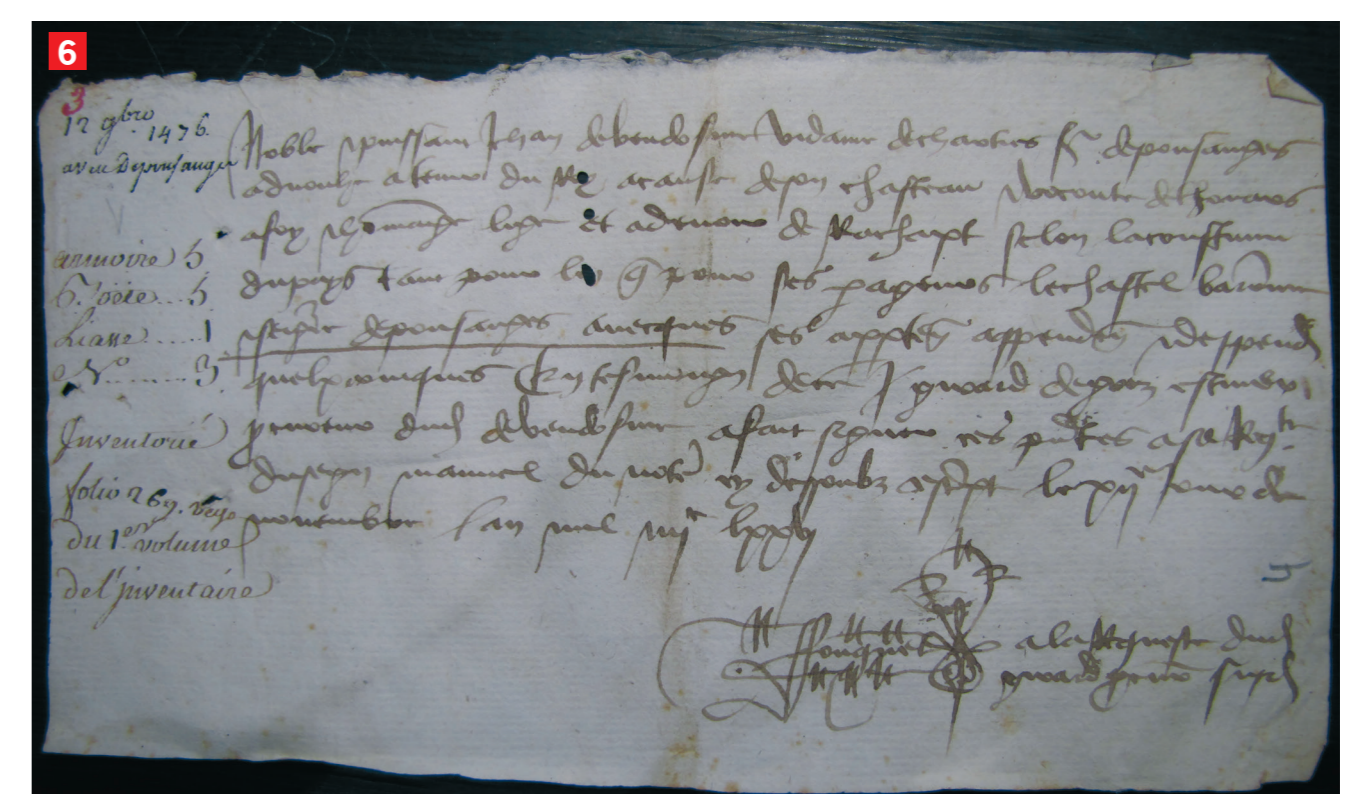 6
3
12 9bre 1476.
aveu De pousauges
armoire 5
Liasse ..... 1
No ....... 3
Inventorié
folio 269. vero
du 1er volume
de l'inventaire
Noble & puissant Jehan de vendosme vidame de chartres sr de pousauges
advouhe a tenir du Roy a cause de son chasteau viconte de thouars
a foy & hommaige lige et a devoir de Rachapt selon la coustume
du pays tant pour luy q pour ses parageurs le chastel baronnie
& seigrie de pousauges avecques ses appten appenden & deppend
quelxconques En tesmoign de ce
procureur dud de vendosme a fait signer ces pntes a sa Reqte
du seign manuel du notre cy dessoubz escript le xije jour de
novembre l'an mil iiijc lxxvj
Fouquet
a la Requeste dud
procur susd